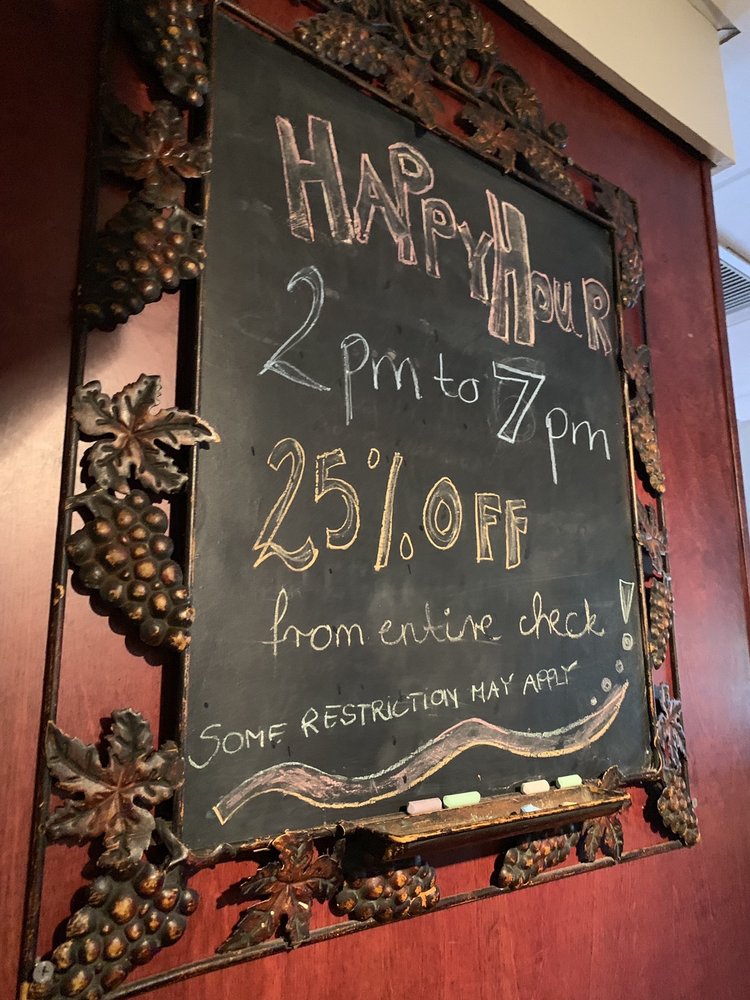 HAPPY HOUR
2pm to 7pm
25% OFF
from entire check!
SOME RESTRICTION MAY APPLY